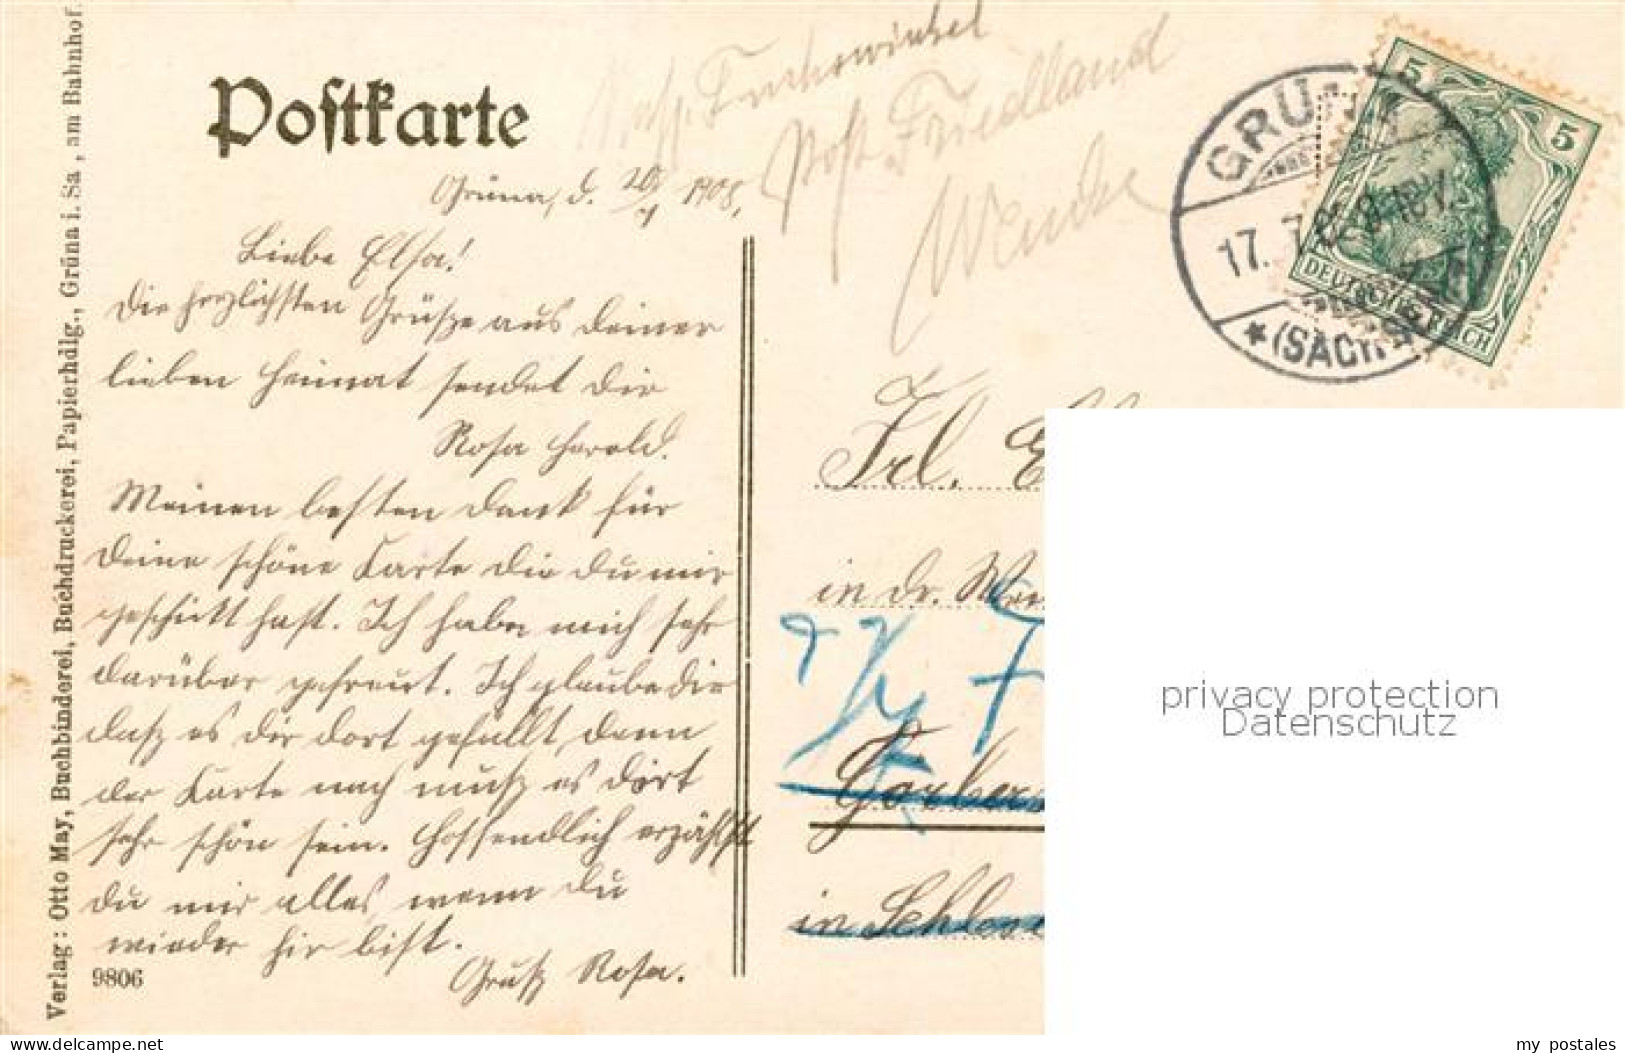 Postkarte
Post Friedland
Grüna, d. 1908.
Liebe Elsa!
Die herzlichsten Grüße aus deiner
lieben Heimat sendet dir
Rosa Herold.
Meinen besten Dank für
deine schöne Karte die du mir
geschickt hast. Ich habe mich sehr
darüber gefreut. Ich glaube dir
daß es dir dort gefällt, denn
der Karte nach muß es dort
sehr schön sein. Hoffendlich erzählst
du mir alles wenn du
wieder hir bist.
Gruß Rosa.
9806
Verlag: Otto May, Buchbinderei, Buchdruckerei, Papierhdlg., Grüna i. Sa., am Bahnhof.
GRÜNA
17. 7.
(SACHSEN)
5
5
DEUTSCHES REICH
Frl.
in dr.
in
privacy protection
Datenschutz
Besuchen Sie uns auf: ansichtskarten-center.de
my postales